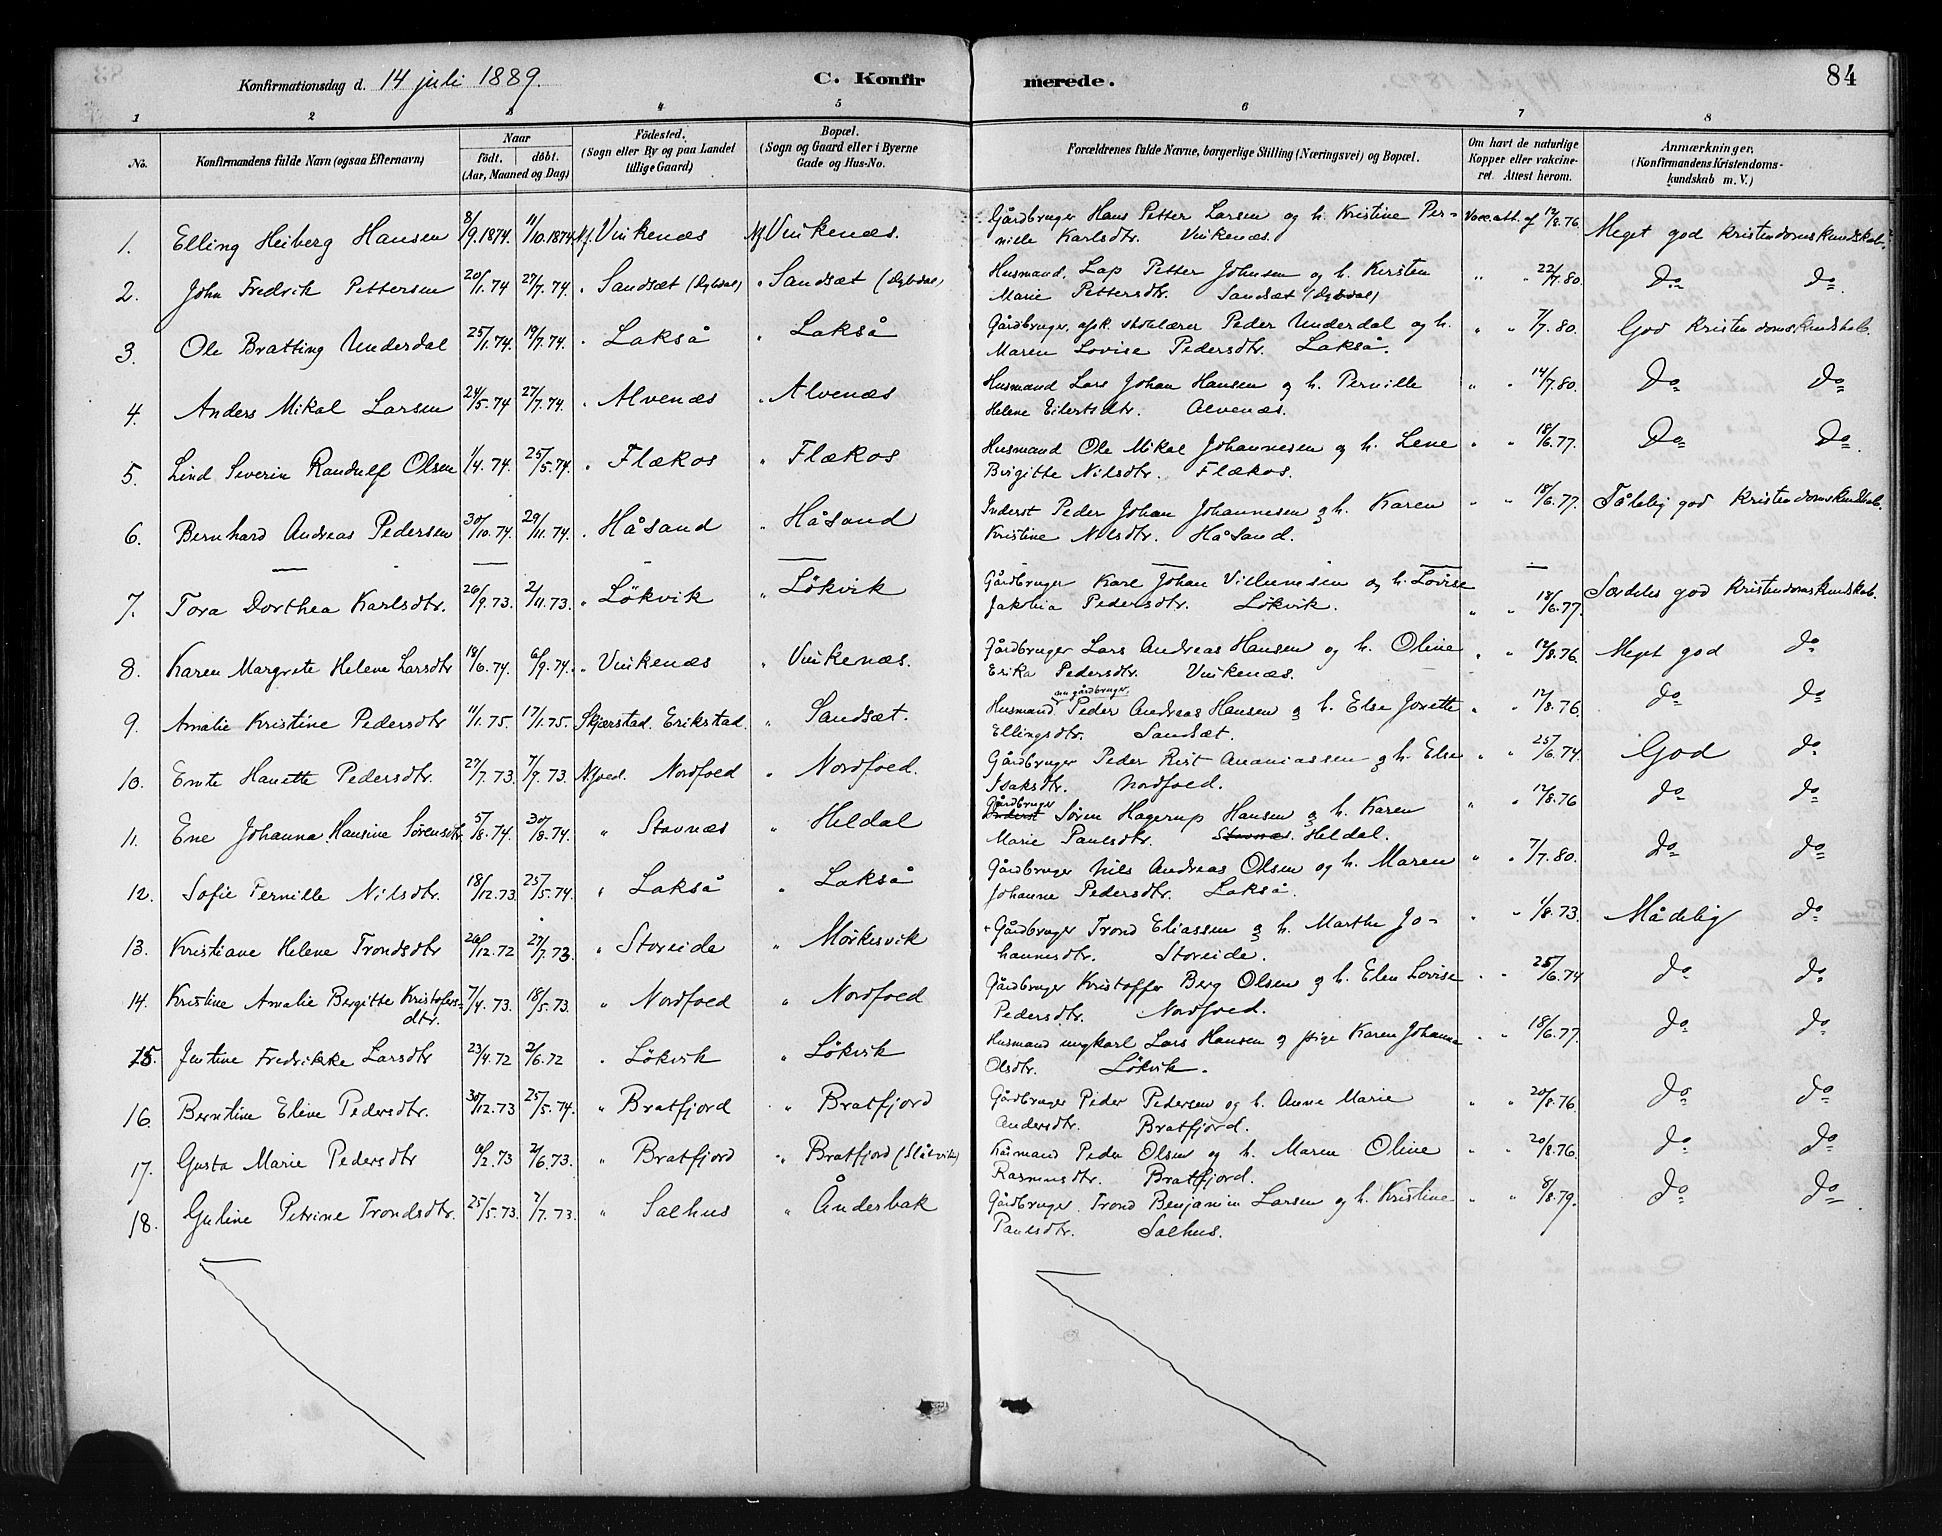 Konfirmationsdag d. 14 juli 1889.
C. Konfirmerede.
84
1 2 3 4 5 6 7 8
No.
Konfirmandens fulde Navn (ogsaa Efternavn)
Naar
födt. döbt.
(Aar, Maaned og Dag)
Födested.
(Sogn eller By og paa Landet
tillige Gaard)
Bopæl.
(Sogn og Gaard eller i Byerne
Gade og Hus-No.
Forældrenes fulde Navne, borgerlige Stilling (Næringsvei) og Bopæl.
Om havt de naturlige
Kopper eller vakcine-
ret. Attest herom.
Anmærkninger,
(Konfirmandens Kristendoms-
kundskab m. V.)
1. Elling Heiberg Hansen 8/9.1874. 11/10.1874. Nf. Vinkenæs Nf. Vinkenæs. Gårdbruger Hans Petter Larsen og h. Kristine Per- Vacc. att. af 12/8.76 Meget god kristendomskundskab.
nille Karlsdtr. Vinkenæs.
2. John Fredrik Pettersen 20/1.74 22/7.74. " Sandsæt (Dybdal) " Sandsæt (Dybdal) Husmand, Lap Petter Johnsen og h. Kirsten " " 22/7.80. Do Do
Marie Pettersdtr. Sandsæt (Dybdal)
3. Ole Bratting Underdal 25/1.74. 19/7.74. " Lakså " Lakså Gårdbruger, afsk. skolelærer Peder Underdal og h. " " 7/7.80. God kristendomskundskab.
Maren Lovise Pedersdtr. Lakså.
4. Anders Mikal Larsen 24/5.74 27/7.74. " Alvenæs " Alvenæs Husmand Lars Johan Hansen og h. Pernille " " 14/7.80. Do Do
Helene Eilertsdtr. Alvenæs.
5. Lind Severin Randulf Olsen 1/4.74. 25/5.74. " Flækos " Flækos Husmand Ole Mikal Johannesen og h. Lene " " 18/6.77. Do Do
Birgitte Nilsdtr. Flækos.
6. Bernhard Andreas Pedersen 30/10.74. 29/11.74. " Håsand " Håsand Inderst Peder Johan Johannesen og h. Karen " " 18/6.77. Tålelig god kristendomskundskab.
Kristine Nilsdtr. Håsand.
7. Tora Dorthea Karlsdtr. 26/9.73. 2/11.73. " Lökvik " Lökvik Gårdbruger Karl Johan Villumsen og h. Lovise " " 18/6.77. Særdeles god kristendomskundskab.
Jakobia Pedersdtr. Lökvik.
8. Karen Margrete Helene Larsdtr 18/6.74. 6/9.74. " Vinkenæs " Vinkenæs. Gårdbruger Lars Andreas Hansen og h. Oline " " 12/8.76. Meget god do
Erika Pedersdtr. Vinkenæs.
9. Amalie Kristine Pedersdtr 11/1.75. 17/1.75. Skjærstad. Erikstad. " Sandsæt. Husmand, nu gårdbruger, Peder Andreas Hansen og h. Else Jonette " " 12/8.76. do do
Ellingsdtr. Sandsæt.
10. Emte Hanette Pedersdtr. 27/7.73. 7/9.73. Nfoed. Nordfoed " Nordfoed. Gårdbruger Peder Rist Ananiassen og h. Else " " 25/6.74. God do
Isaksdtr. Nordfoed.
11. Ene Johanna Hansine Sørensdtr. 5/8.74. 30/8.74. " Stavnæs " Heldal Gårdbruger Inderst Sören Hagerup Hansen og h. Karen " " 12/8.76 do do
Marie Paulsdtr. Stavnæs. Heldal.
12. Sofie Pernille Nilsdtr. 18/12.73. 25/5.74. " Lakså " Lakså Gårdbruger Nils Andreas Olsen og h. Maren " " 7/7.80. do do
Johanne Pedersdtr. Lakså.
13. Kristiane Helene Trondsdtr 26/12.72 27/7.73. " Storeide " Mørkesvik Gårdbruger Trond Eliassen og h. Marthe Jo- " " 1/8.73. Mådelig do
hannesdtr. Storeide.
14. Kristine Amalie Bergitte Kristofers- 7/4.73. 18/5.73. " Nordfoed " Nordfoed Gårdbruger Kristoffer Berg Olsen og h. Elen Lovise " " 25/6.74 do do
dtr. Pedersdtr. Nordfoed.
15. Jentine Fredrikke Larsdtr 23/4.72 2/6.72 " Lökvik " Lökvik Husmand ungkarl Lars Hansen og pige Karen Johanna " " 18/6.77. do do
Olsdtr. Lökvik.
16. Berntine Eline Pedersdtr. 30/12.73 25/5.74. " Bratfjord " Bratfjord Gårdbruger Peder Pedersen og h. Anne Marie " " 20/8.76. do do
Andersdtr. Bratfjord.
17. Gusta Marie Pedersdtr 2.73 2/6.73. " Bratfjord " Bratfjord (Slåtvik) Kårmand Peder Olsen og h. Maren Oline " " 20/8.76. do do
Rasmusdtr. Bratfjord.
18. Guline Petrine Trondsdtr. 25/5.73. 7.73. " Salhus " Ånderbak Gårdbruger Trond Benjamin Larsen og h. Kristine " " 8/8.79. do do
Paulsdtr. Salhus.